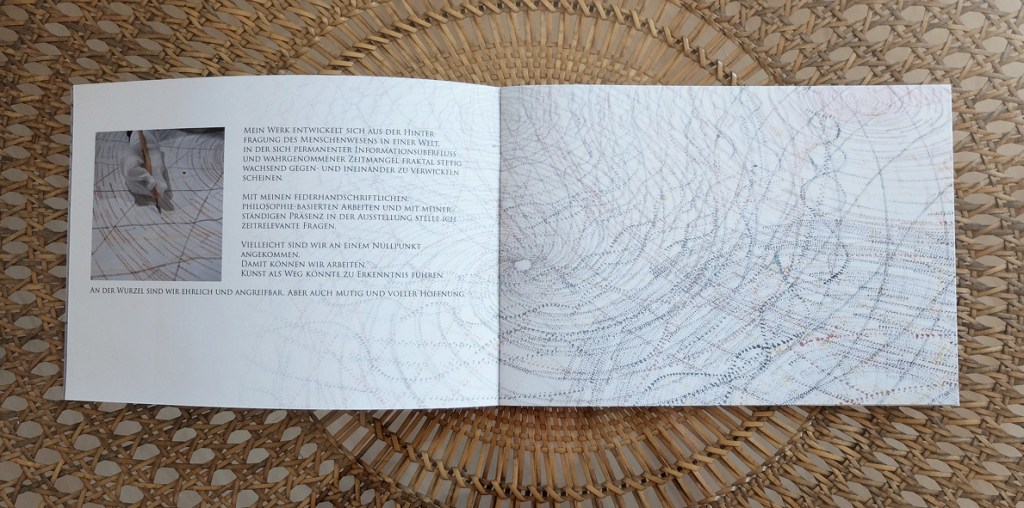 Mein Werk entwickelt sich aus der Hinter
fragung des Menschenwesens in einer Welt,
in der sich permanenter Informationsüberfluss
und wahrgenommener Zeitmangel fraktal stetig
wachsend gegen- und ineinander zu verwickeln
scheinen.
Mit meinen federhandschriftlichen,
philosophie-basierten Arbeiten und mit meiner
ständigen Präsenz in der Ausstellung stelle ich
zeitrelevante Fragen.
Vielleicht sind wir an einem Nullpunkt
angekommen.
Damit können wir arbeiten.
Kunst als Weg könnte zu Erkenntnis führen.
An der Wurzel sind wir ehrlich und angreifbar. Aber auch mutig und voller Hoffnung.